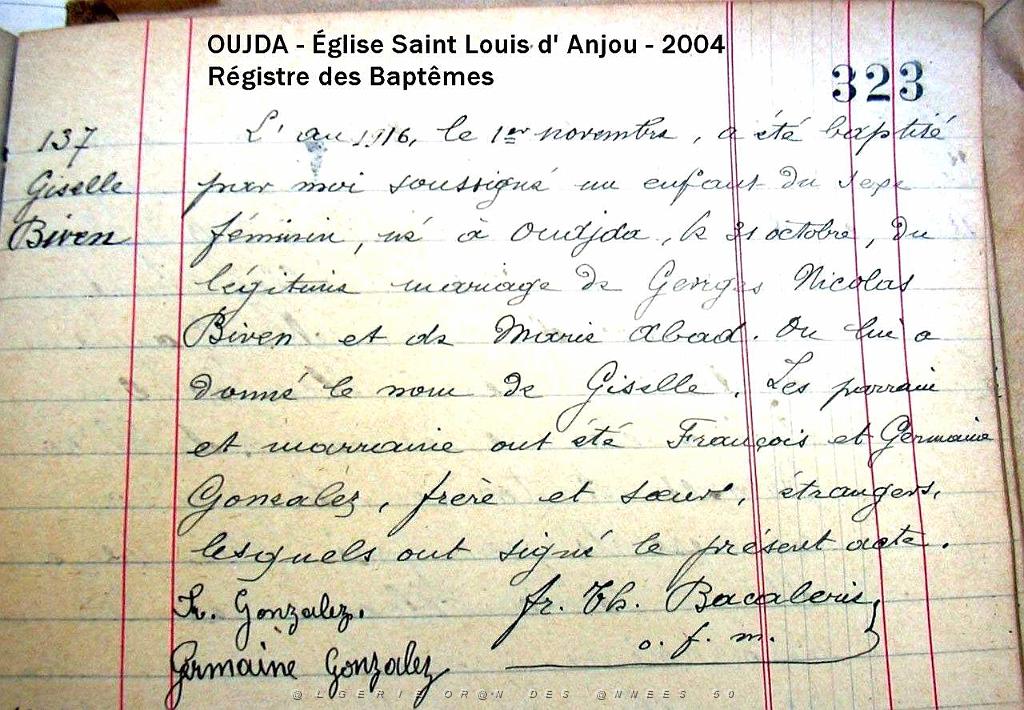 OUJDA - Église Saint Louis d' Anjou - 2004
Régistre des Baptêmes
323
137
Giselle
Biven
L'an 1916, le 1er novembre, a été baptisé
par moi soussigné un enfant du sexe
féminin, né à Oudjda, le 31 octobre, du
légitime mariage de Georges Nicolas
Biven et de Marie Abad. On lui a
donné le nom de Giselle. Les parrain
et marraine ont été François et Germaine
Gonzalez, frère et sœur, étrangers,
lesquels ont signé le présent acte.
Fr. Gonzalez.
fr. Th. Bacaleris
o. f. m.
Germaine Gonzalez
@LGERIE OR@N DES @NNEES 50